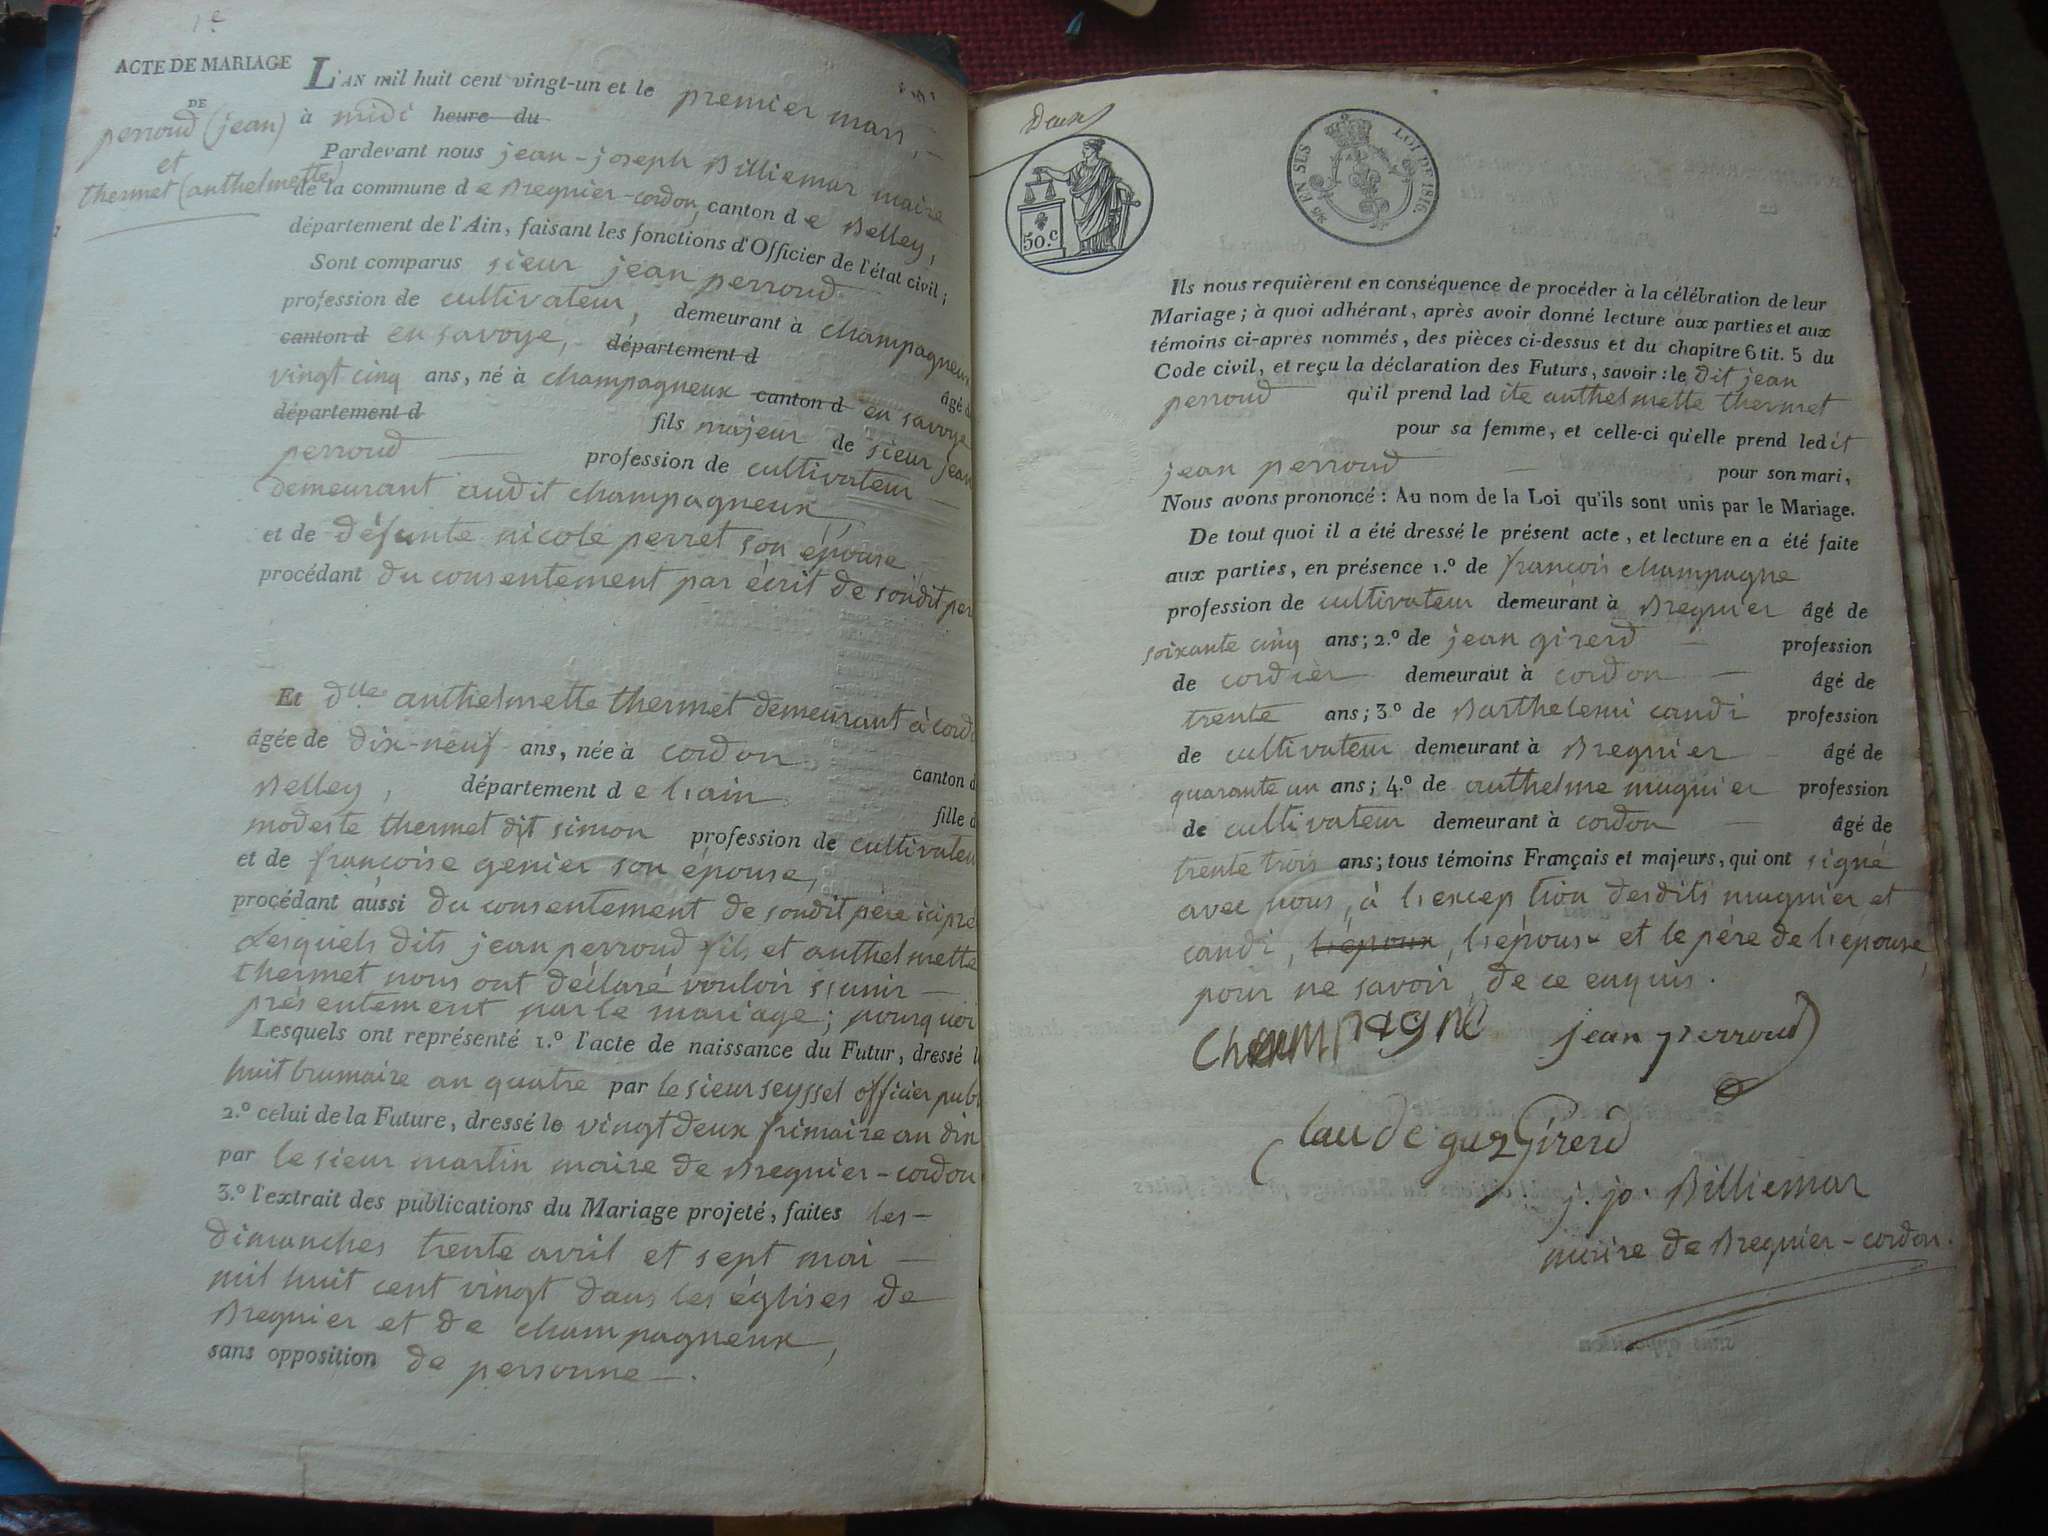 1e
ACTE DE MARIAGE
DE
perroud (jean)
et
thermet (anthelmette)
L'AN mil huit cent vingt-un et le premier mars,
à midi heure du
Pardevant nous jean-joseph Billiemar maire
de la commune de Bregnier-cordon, canton de Belley,
département de l'Ain, faisant les fonctions d'Officier de l'état civil;
Sont comparus sieur jean perroud
profession de cultivateur, demeurant à champagneux
canton d en savoye, département d âgé d
vingt cinq ans, né à champagneux canton d en savoye
département d fils majeur de sieur jean
perroud profession de cultivateur
demeurant audit champagneux
et de défunte nicole perret son épouse
procédant du consentement par écrit de sondit per
Et dlle anthelmette thermet demeurant à cord
âgée de dix-neuf ans, née à cordon canton d
Belley, département de l'ain fille d
modeste thermet dit simon profession de cultivateu
et de françoise genier son épouse,
procédant aussi du consentement de sondit père ici pre
Lesquels dits jean perroud fils et anthelmette
thermet nous ont déclaré vouloir s'unir
présentement par le mariage; pourquoi
Lesquels ont représenté 1.º l'acte de naissance du Futur, dressé l
huit brumaire an quatre par le sieur seyssel officier publ
2.º celui de la Future, dressé le vingt deux frimaire an dix
par le sieur martin maire de Bregnier-cordon
3.º l'extrait des publications du Mariage projeté, faites les
dimanches trente avril et sept mai
mil huit cent vingt dans les églises de
Bregnier et de champagneux,
sans opposition de personne.
Deux
50.c
LOI DE 1816.
EN SUS
Ils nous requièrent en conséquence de procéder à la célébration de leur
Mariage; à quoi adhérant, après avoir donné lecture aux parties et aux
témoins ci-apres nommés, des pièces ci-dessus et du chapitre 6 tit. 5 du
Code civil, et reçu la déclaration des Futurs, savoir: le dit jean
perroud qu'il prend ladite anthelmette thermet
pour sa femme, et celle-ci qu'elle prend ledit
jean perroud pour son mari,
Nous avons prononcé: Au nom de la Loi qu'ils sont unis par le Mariage.
De tout quoi il a été dressé le présent acte, et lecture en a été faite
aux parties, en présence 1.º de françois champagne
profession de cultivateur demeurant à Bregnier âgé de
soixante cinq ans; 2.º de jean girerd profession
de cordier demeurant à cordon âgé de
trente ans; 3.º de Barthelemi candi profession
de cultivateur demeurant à Bregnier âgé de
quarante un ans; 4.º de anthelme mugnier profession
de cultivateur demeurant à cordon âgé de
trente trois ans; tous témoins Français et majeurs, qui ont signé
avec nous, à l'exception desdits mugnier et
candi, l'époux, l'épouse et le père de l'epouse,
pour ne savoir, de ce enquis.
Champagne jean perroud
Claude Girerd
j. jo. Billiemar
maire de Bregnier-cordon.